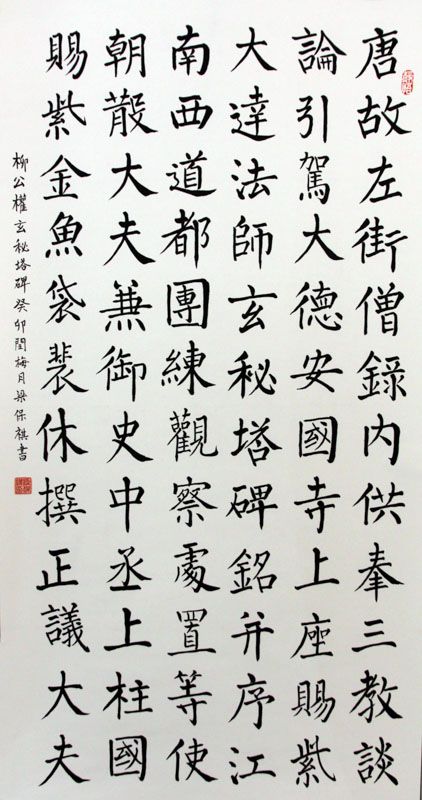 唐故左街僧錄內供奉三教談
論引駕大德安國寺上座賜紫
大達法師玄秘塔碑銘并序江
南西道都團練觀察處置等使
朝散大夫兼御史中丞上柱國
賜紫金魚袋裴休撰正議大夫
柳公權玄秘塔碑癸卯閏梅月梁保祺書